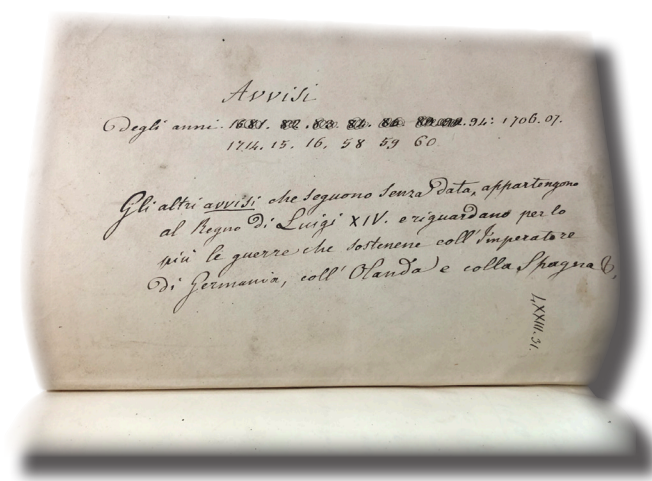 Avvisi
Degli anni. 1681. 82. 83. 84. 86. 94: 1706. 07.
1714. 15. 16. 58 59 60
Gli altri avvisi che seguono senza data, appartengono
al Regno di Luigi XIV. e riguardano per lo
più le guerre che sostenene coll'Imperatore
di Germania, coll' Olanda e colla Spagna
LXXIII. 31.